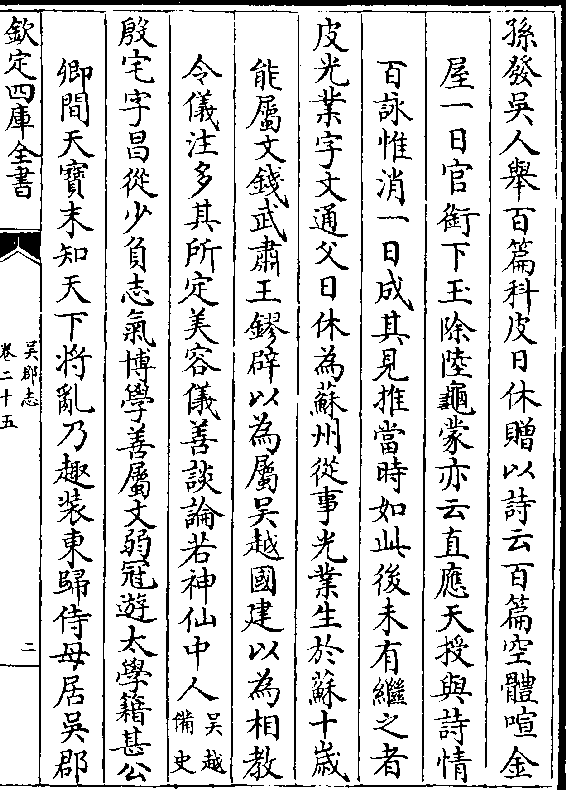 孫發吳人舉百篇科皮日休贈以詩云百篇空體喧金
屋一日官銜下玉除陸龜蒙亦云直應天授與詩情
百詠惟消一日成其見推當時如此後未有繼之者
皮光業字文通父日休為蘇州從事光業生於蘇十歲
能屬文錢武肅王鏐辟以為屬吳越國建以為相教
令儀注多其所定美容儀善談論若神仙中人吳越備史
殷宅字昌從少負志氣博學善屬文弱冠遊太學籍甚公
卿間天寶末知天下將亂乃趣裝東歸侍母居吳郡
欽定四庫全書
吳郡志
卷二十五
二